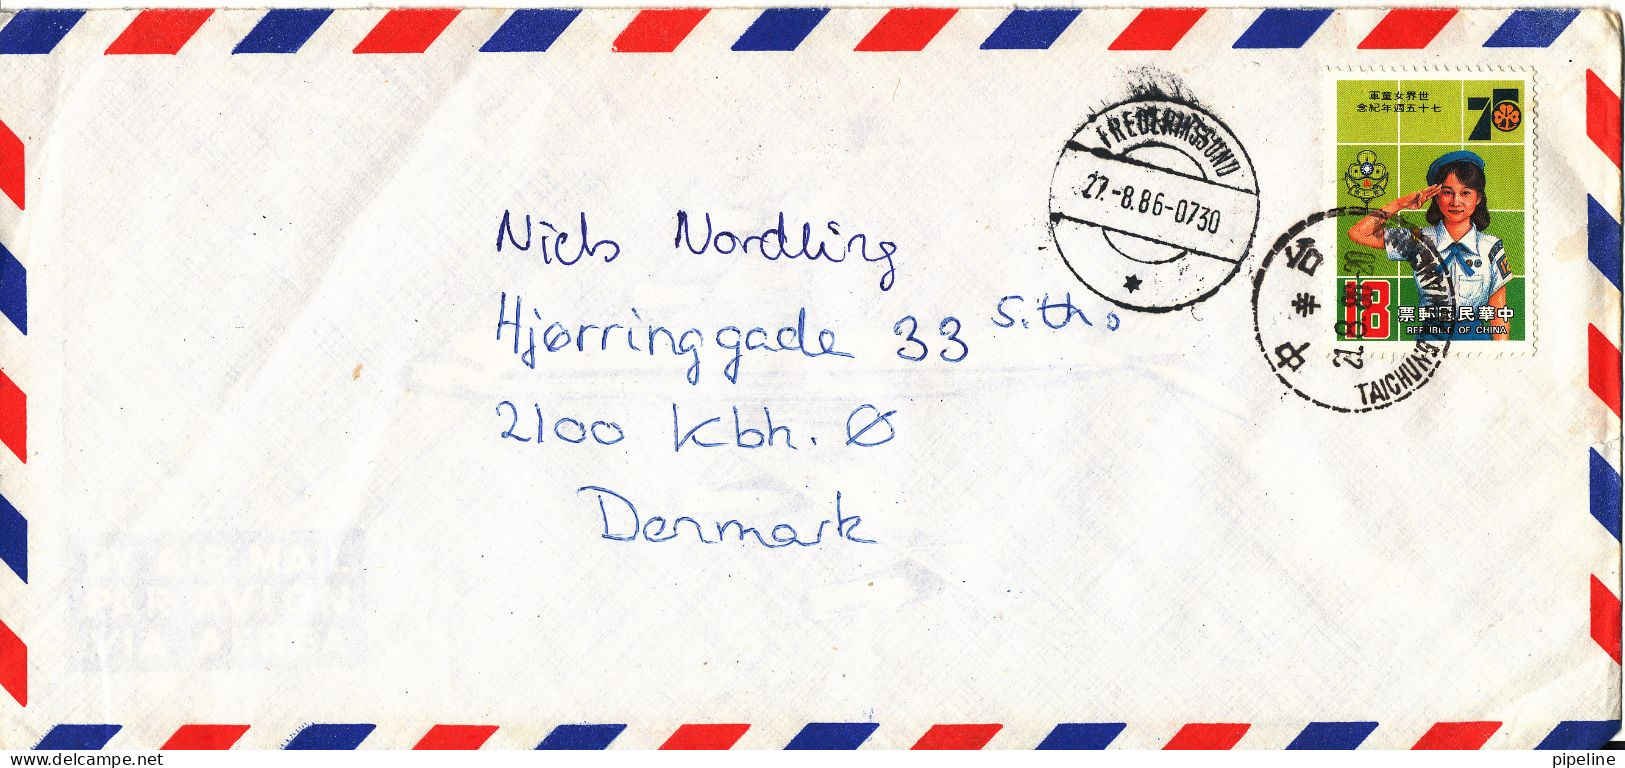 世界女童軍
七十五週年紀念
75
FREDERIKSSUND
27.-8.86-0730
Niels Nordling
Hjørringgade 33 s.th.
2100 Kbh. Ø
Denmark
18
中華民國郵票
REPUBLIC OF CHINA
台
中
21.-8.86-20
TAICHUNG
delcampe.net
pipeline